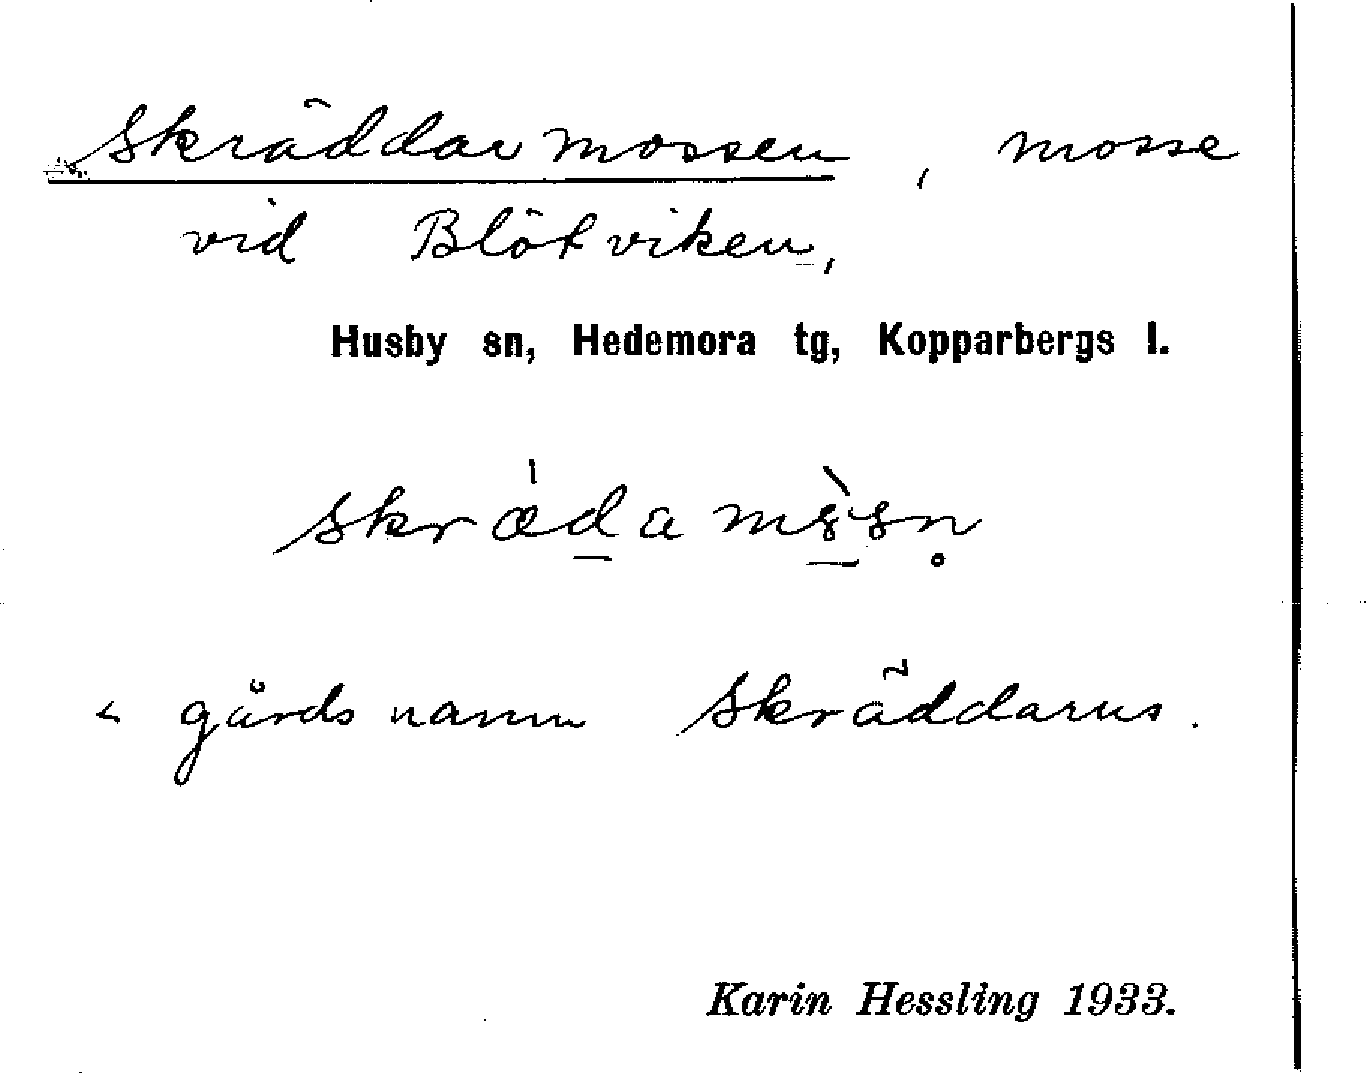 Skräddarmossen, mosse
vid Blötviken,
Husby sn, Hedemora tg, Kopparbergs l.
< gårdsnamn Skräddarns.
Karin Hessling 1933.